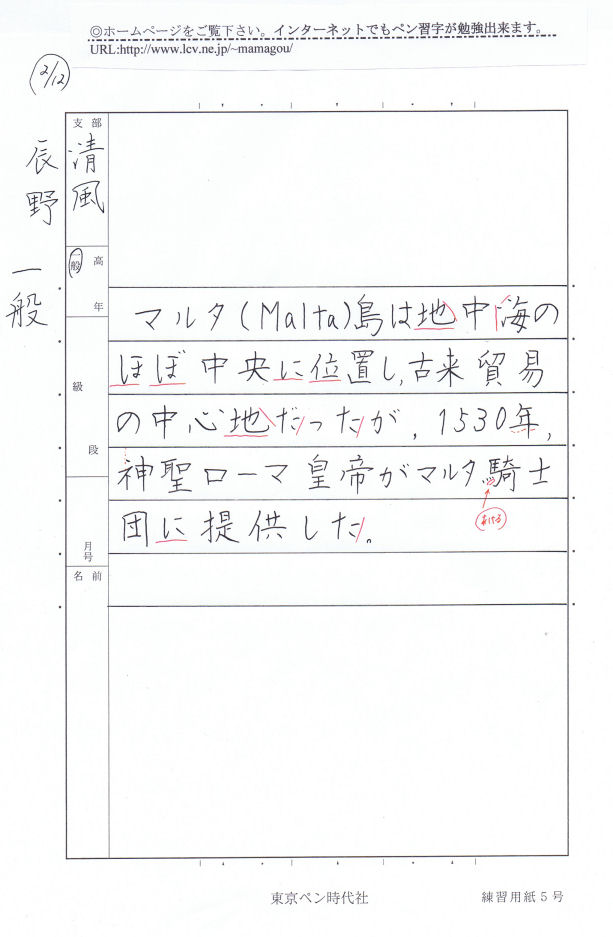 ◎ホームページをご覧下さい。インターネットでもペン習字が勉強出来ます。
URL:http://www.lcv.ne.jp/~mamagou/
2/12
辰野 一般
支部
清風
一般
高
年
級
段
月号
名前
マルタ(Malta)島は地中海の
ほぼ中央に位置し,古来貿易
の中心地だったが,1530年,
神聖ローマ皇帝がマルタ騎士
団に提供した。
東京ペン時代社
練習用紙5号